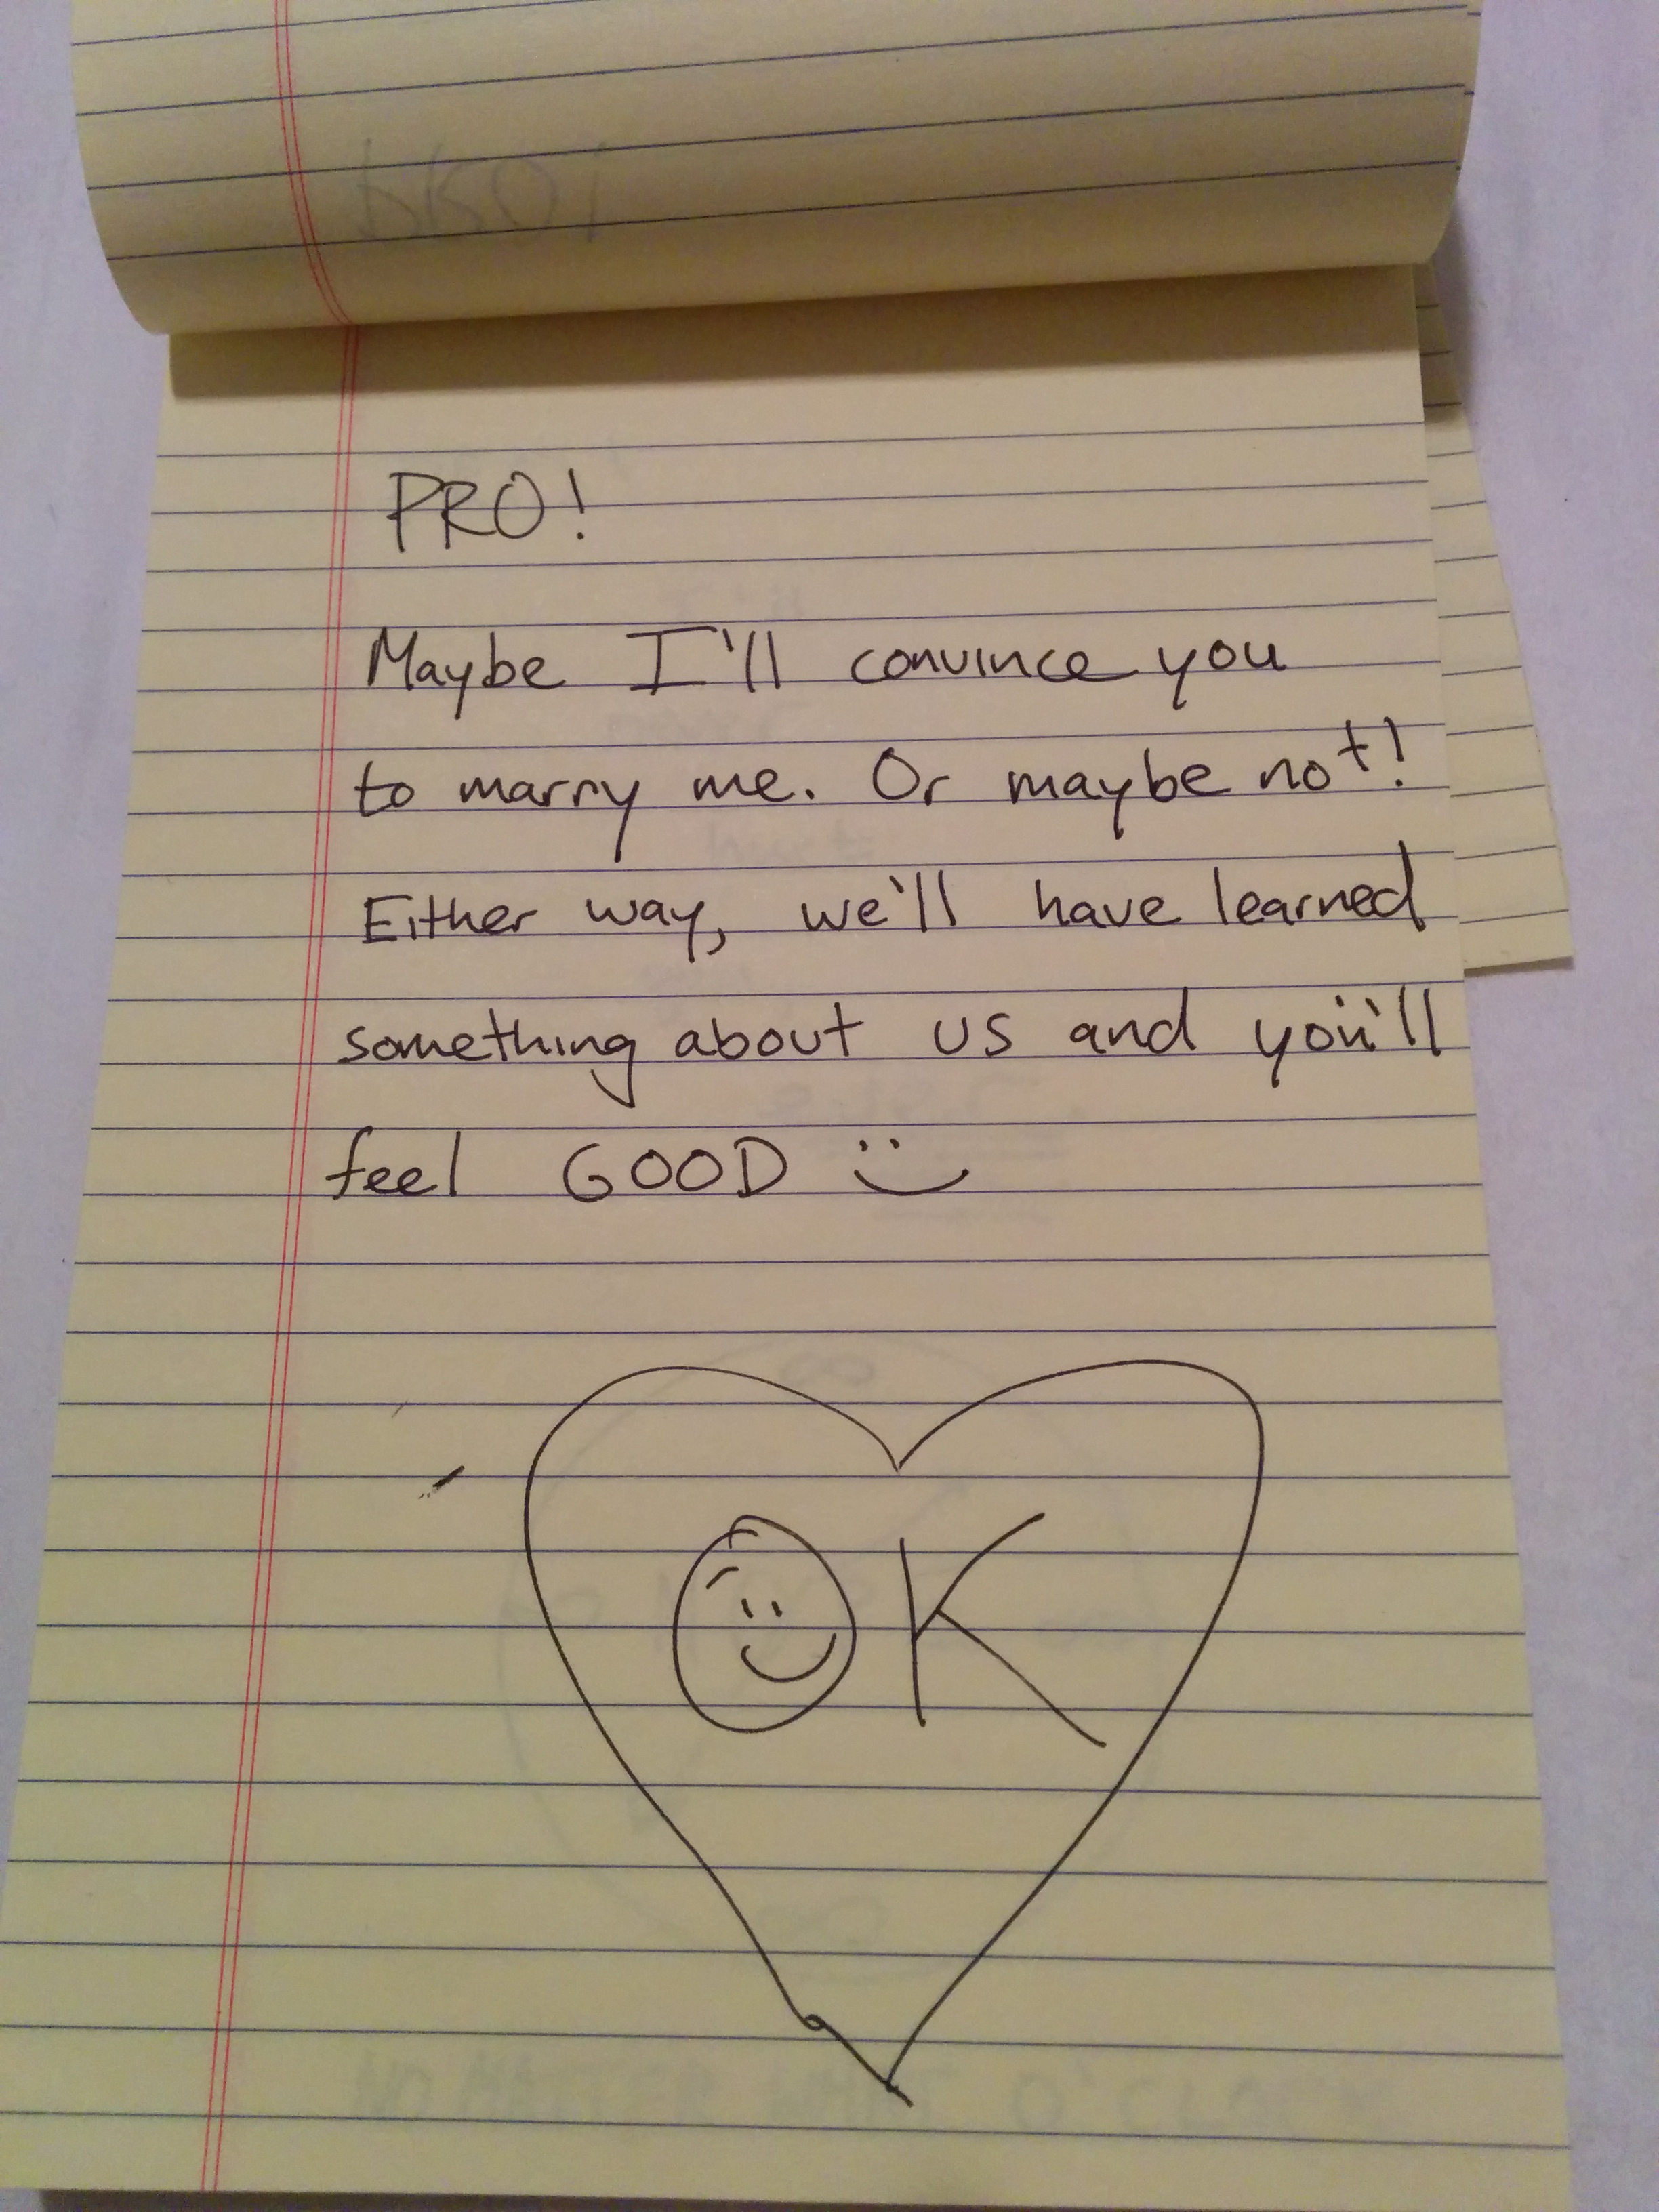 PRO!
Maybe I'll convince you
to marry me. Or maybe not!
Either way, we'll have learned
something about us and you'll
feel GOOD :)
OK
NO MATTER WHAT O'CLOCK